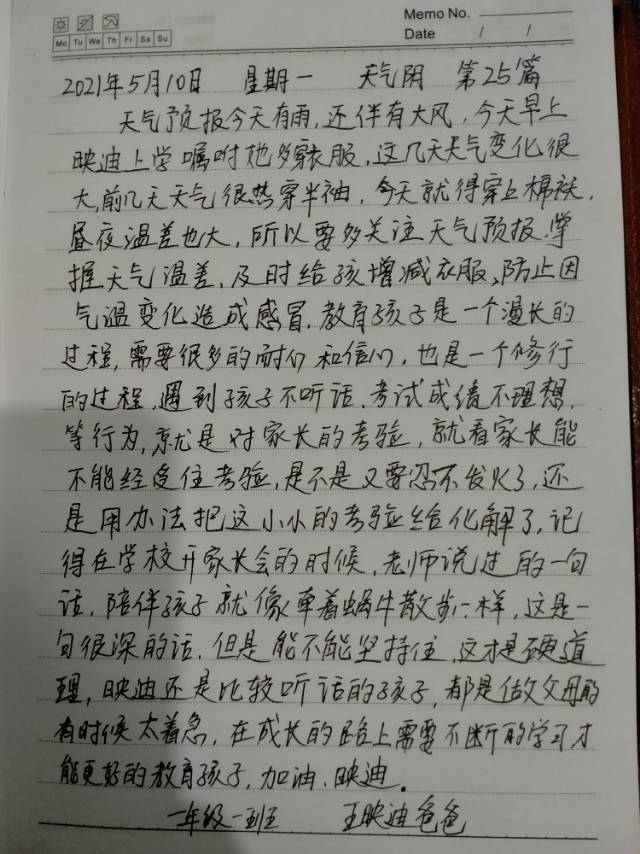 Memo No.
Mo Tu We Th Fr Sa Su
Date / /
2021年5月10日 星期一 天气阴 第25篇
天气预报今天有雨,还伴有大风,今天早上
映迪上学嘱咐她多穿衣服,这几天天气变化很
大,前几天天气很热穿半袖,今天就得穿上棉袄,
昼夜温差也大,所以要多关注天气预报,掌
握天气温差,及时给孩增减衣服,防止因
气温变化造成感冒,教育孩子是一个漫长的
过程,需要很多的耐心和信心,也是一个修行
的过程,遇到孩子不听话,考试成绩不理想,
等行为,就是对家长的考验,就看家长能
不能经受住考验,是不是又要忍不发火了,还
是用办法把这小小的考验给化解了,记
得在学校开家长会的时候,老师说过的一句
话,陪伴孩子就像牵着蜗牛散步一样,这是一
句很深的话,但是能不能坚持住,这才是硬道
理,映迪还是比较听话的孩子,都是做父母的
有时候太着急,在成长的路上需要不断的学习才
能更好的教育孩子,加油,映迪。
一年级一班 王映迪爸爸